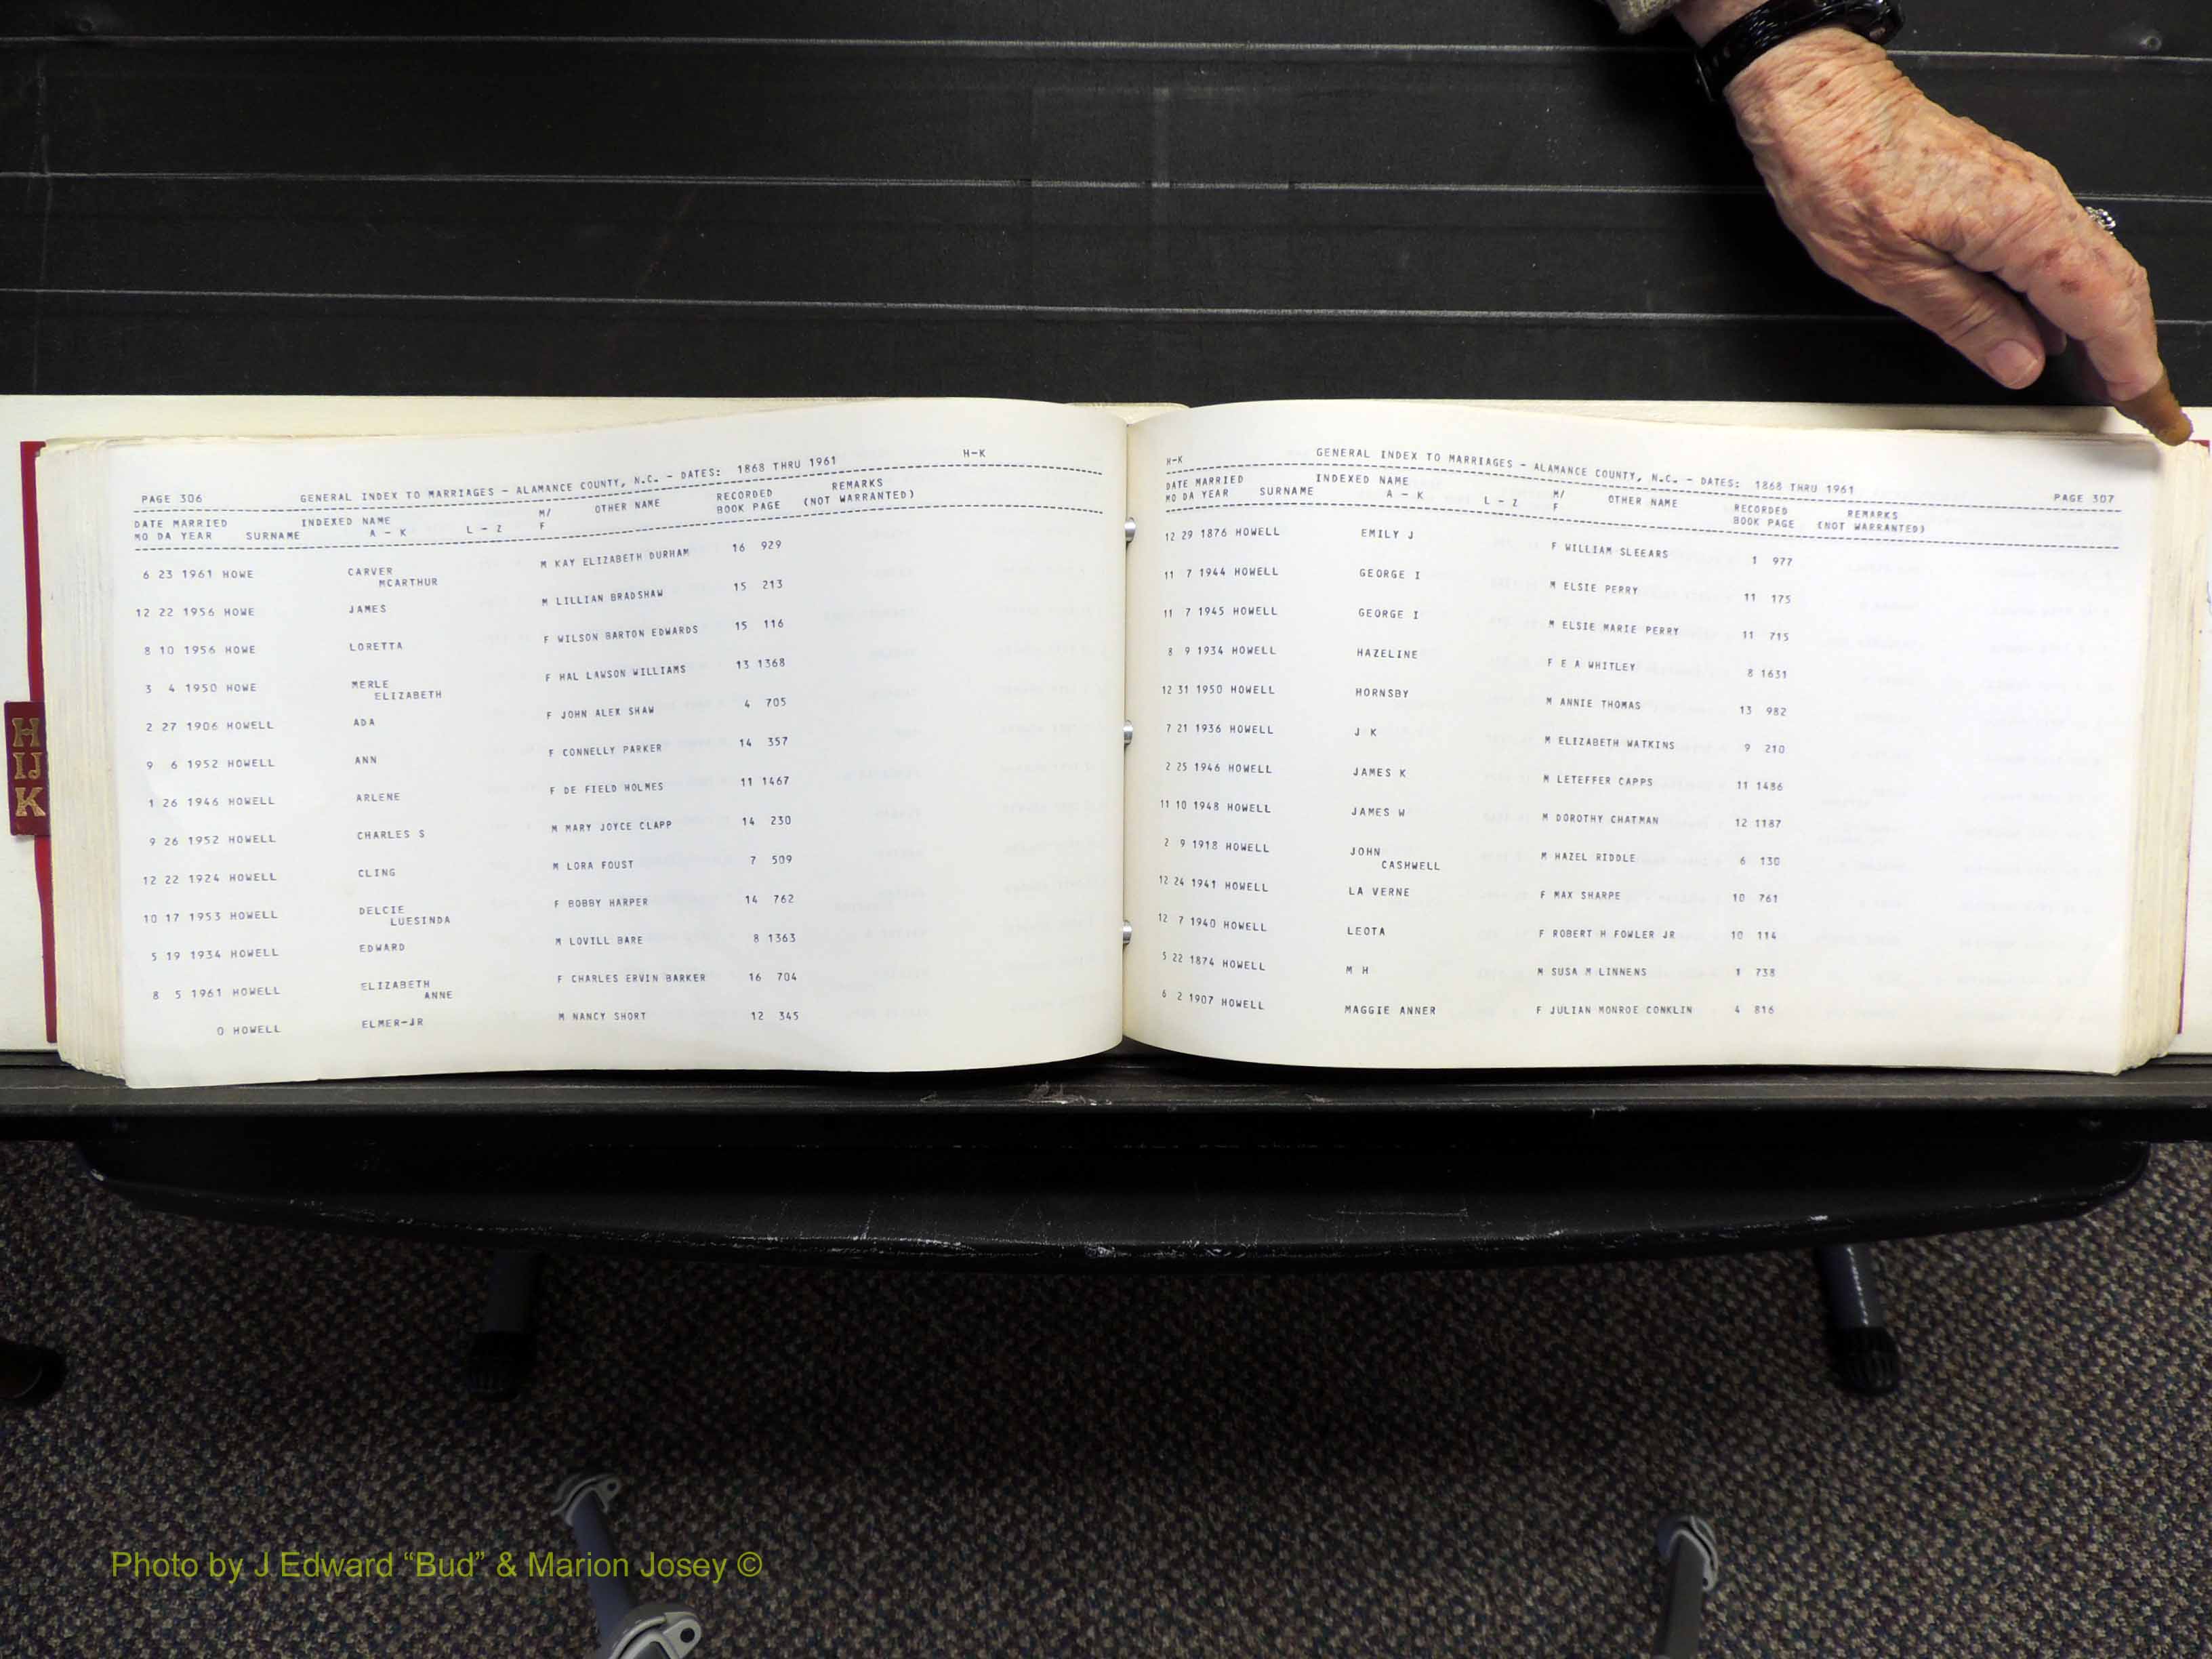 PAGE 306 GENERAL INDEX TO MARRIAGES - ALAMANCE COUNTY, N.C. - DATES: 1868 THRU 1961 H-K
DATE MARRIED INDEXED NAME M/ OTHER NAME RECORDED REMARKS
MO DA YEAR SURNAME A - K L - Z F BOOK PAGE (NOT WARRANTED)
6 23 1961 HOWE CARVER M KAY ELIZABETH DURHAM 16 929
MCARTHUR
12 22 1956 HOWE JAMES M LILLIAN BRADSHAW 15 213
8 10 1956 HOWE LORETTA F WILSON BARTON EDWARDS 15 116
3 4 1950 HOWE MERLE F HAL LAWSON WILLIAMS 13 1368
ELIZABETH
2 27 1906 HOWELL ADA F JOHN ALEX SHAW 4 705
9 6 1952 HOWELL ANN F CONNELLY PARKER 14 357
1 26 1946 HOWELL ARLENE F DE FIELD HOLMES 11 1467
9 26 1952 HOWELL CHARLES S M MARY JOYCE CLAPP 14 230
12 22 1924 HOWELL CLING M LORA FOUST 7 509
10 17 1953 HOWELL DELCIE F BOBBY HARPER 14 762
LUESINDA
5 19 1934 HOWELL EDWARD M LOVILL BARE 8 1363
8 5 1961 HOWELL ELIZABETH F CHARLES ERVIN BARKER 16 704
ANNE
0 HOWELL ELMER-JR M NANCY SHORT 12 345
H-K GENERAL INDEX TO MARRIAGES - ALAMANCE COUNTY, N.C. - DATES: 1868 THRU 1961 PAGE 307
DATE MARRIED INDEXED NAME M/ OTHER NAME RECORDED REMARKS
MO DA YEAR SURNAME A - K L - Z F BOOK PAGE (NOT WARRANTED)
12 29 1876 HOWELL EMILY J F WILLIAM SLEEARS 1 977
11 7 1944 HOWELL GEORGE I M ELSIE PERRY 11 175
11 7 1945 HOWELL GEORGE I M ELSIE MARIE PERRY 11 715
8 9 1934 HOWELL HAZELINE F E A WHITLEY 8 1631
12 31 1950 HOWELL HORNSBY M ANNIE THOMAS 13 982
7 21 1936 HOWELL J K M ELIZABETH WATKINS 9 210
2 25 1946 HOWELL JAMES K M LETEFFER CAPPS 11 1486
11 10 1948 HOWELL JAMES W M DOROTHY CHATMAN 12 1187
2 9 1918 HOWELL JOHN M HAZEL RIDDLE 6 130
CASHWELL
12 24 1941 HOWELL LA VERNE F MAX SHARPE 10 761
12 7 1940 HOWELL LEOTA F ROBERT H FOWLER JR 10 114
5 22 1874 HOWELL M H M SUSA M LINNENS 1 738
6 2 1907 HOWELL MAGGIE ANNER F JULIAN MONROE CONKLIN 4 816
H
IJ
K
Photo by J Edward “Bud” & Marion Josey ©